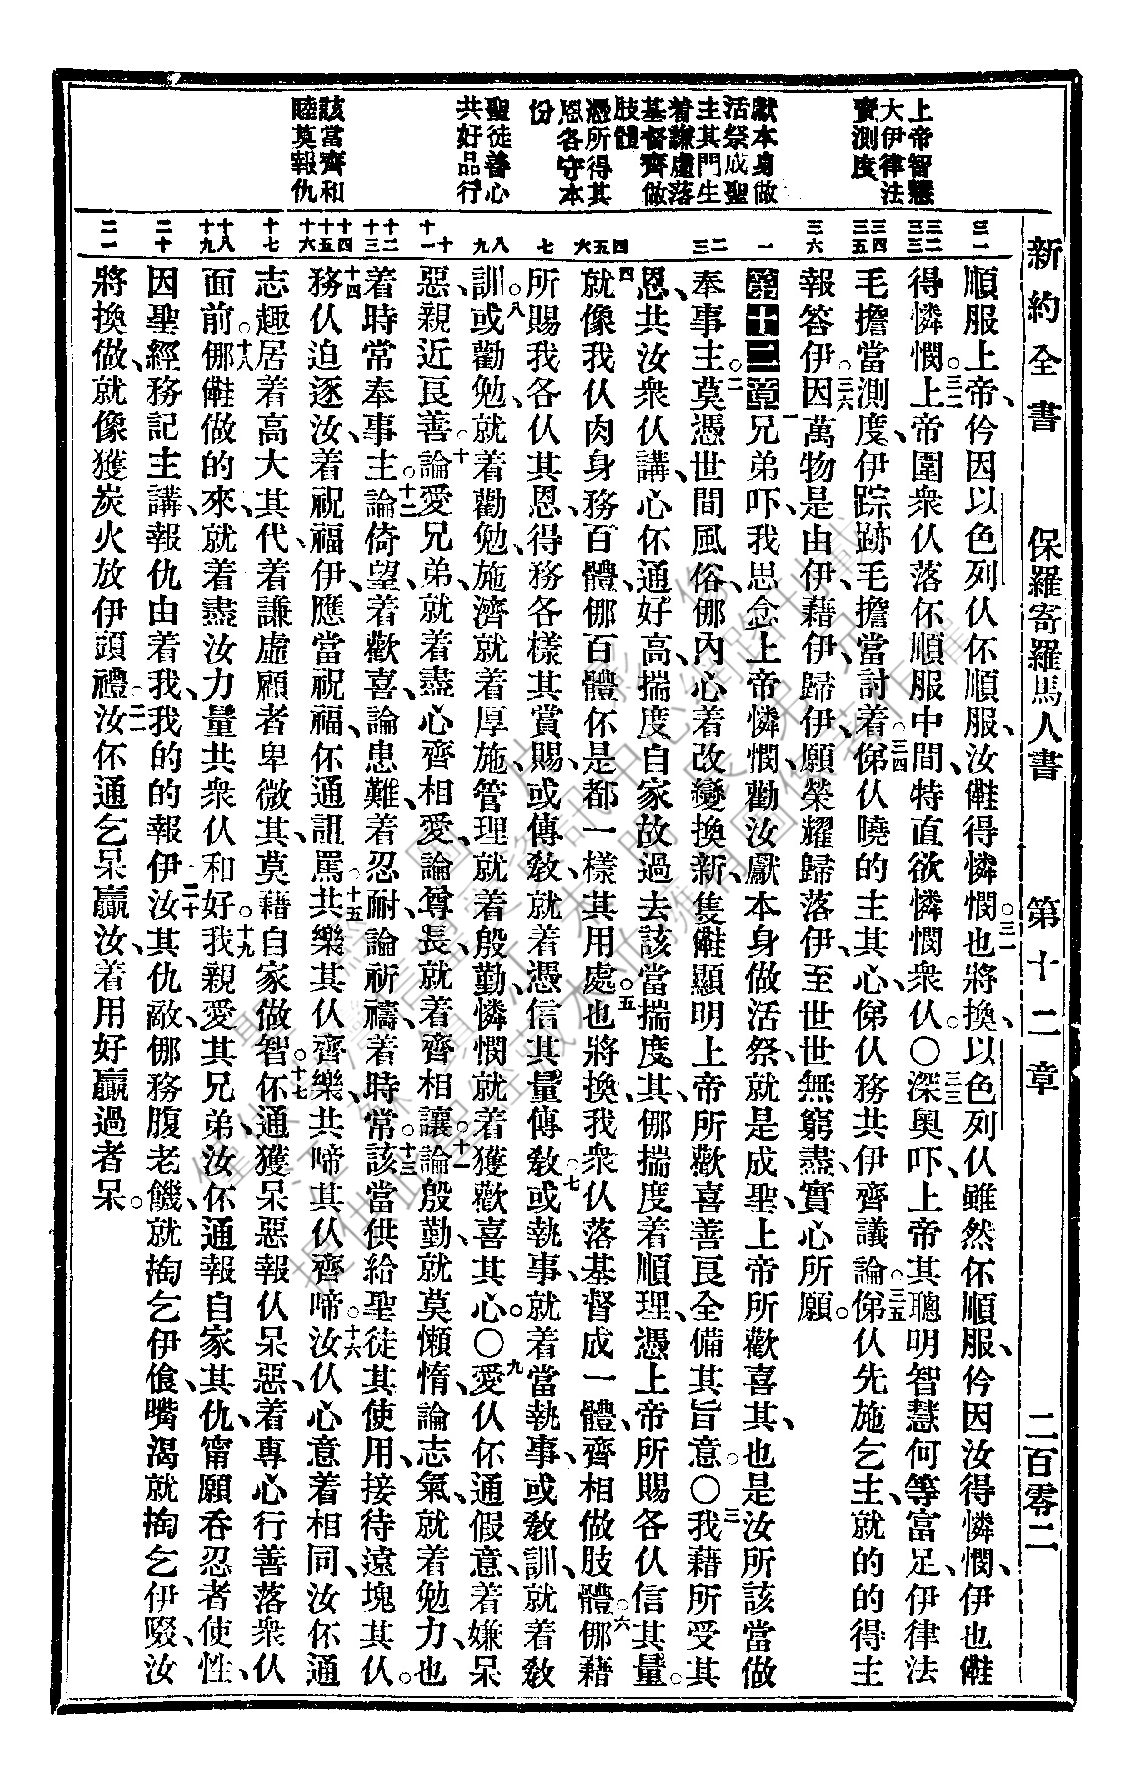 新約全書 保羅寄羅馬人書 第十二章 二百零二
上帝智慧
大伊律法
實測度
獻本身做
活祭成聖
主其門生
着謙虛落
基督齊做
肢體
憑所得其
恩各守本
份
聖徒善心
共好品行
該當齊和
睦莫報仇
順服上帝、仱因以色列仈伓順服、汝得憐憫。三一也將換、以色列仈雖然伓順服、仱因汝得憐憫、伊也
得憐憫。三二上帝圍衆仈落伓順服中間、特直欲憐憫衆仈。〇三三深奧吓、上帝其聰明智慧何等富足、伊律法
毛擔當測度、伊踪跡毛擔當討着。三四俤仈曉的主其心、俤仈務共伊齊議論。三五俤仈先施乞主、就的的得主
報答伊。三六因萬物是由伊、藉伊、歸伊、願榮耀歸落伊、至世世無窮盡、實心所願。
第十二章 一兄弟吓、我思念上帝憐憫、勸汝獻本身做活祭、就是成聖、上帝所歡喜其、也是汝所該當做
奉事主。二莫憑世間風俗、𠆧內心着改變換新、隻顯明上帝所歡喜善良全備其旨意。〇三我藉所受其
恩、共汝衆仈講、心伓通好高、揣度自家故過去該當揣度其、𠆧揣度着順理、憑上帝所賜各仈信其量。
四就像我仈肉身務百體、𠆧百體伓是都一樣其用處。五也將換、我衆仈落基督成一體、齊相做肢體。六𠆧藉
所賜我各仈其恩、得務各樣其賞賜、或傳教、就着憑信其量傳教。七或執事、就着當執事、或教訓、就着教
訓。八或勸勉、就着勸勉、施濟就着厚施、管理就着殷勤、憐憫就着獲歡喜其心。〇九愛仈伓通假意、着嫌呆
惡、親近良善。十論愛兄弟、就着盡心齊相愛、論尊長、就着齊相讓。十一論殷勤、就莫懶惰、論志氣、就着勉力、也
着時常奉事主。十二論倚望、着歡喜、論患難、着忍耐、論祈禱、着時常。十三該當供給聖徒其使用、接待遠塊其仈。
十四務仈迫逐汝、着祝福伊、應當祝福、伓通詛罵。十五共樂其仈齊樂、共啼其仈齊啼。十六汝仈心意着相同、汝伓通
志趣居着高大其、代着謙虛顧者卑微其、莫藉自家做智。十七伓通獲呆惡報仈呆惡、着專心行善落衆仈
面前。十八𠆧做的來、就着盡汝力量共衆仈和好。十九我親愛其兄弟、汝伓通報自家其仇、甯願吞忍者使性、
因聖經務記主講、報仇由着我、我的的報伊。二十汝其仇敵、𠆧務腹老饑、就掏乞伊飡、嘴渴就掏乞伊啜、汝
將換做、就像獲炭火放伊頭禮。二一汝伓通乞呆贏汝、着用好贏過者呆。